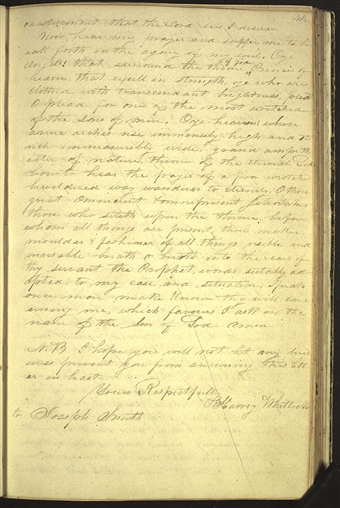 that the Lord
Now, hear my prayer and suffer me to b
call forth in the agony of my soul. O ye
Angels that surround the throne of God, Princes of
heaven that excell in strength, ye who are
clothed with transcendant brightness, plead
O plead for one of the most wretched
of the sons of men. O ye heavens whose
azure arches rise immensely high and st
retch immeasurably wide, grand amphith
eater of nature, throne of the eternal God
bow to hear the prayer of a poor wretched
bewildered way wanderer to eternity. O thou
great Omnicient & omnipresent Jehovah,
thou who siteth upon the throne, before
whom all things are present, thou maker
moulder & fashioner of all things visible and
invisable breath o breath into the ears of
thy servant the Prophet, words suitably ad
apted to my case and situation, speak
once more, make known thy will conc
erning me, which favours I ask in the
name of the Son of God Amen
N.B I hope you will not let any busi
ness prevent you from answering this lett
er in hast
Yours Respectfully
Harvey Whitlock
to Joseph Smith